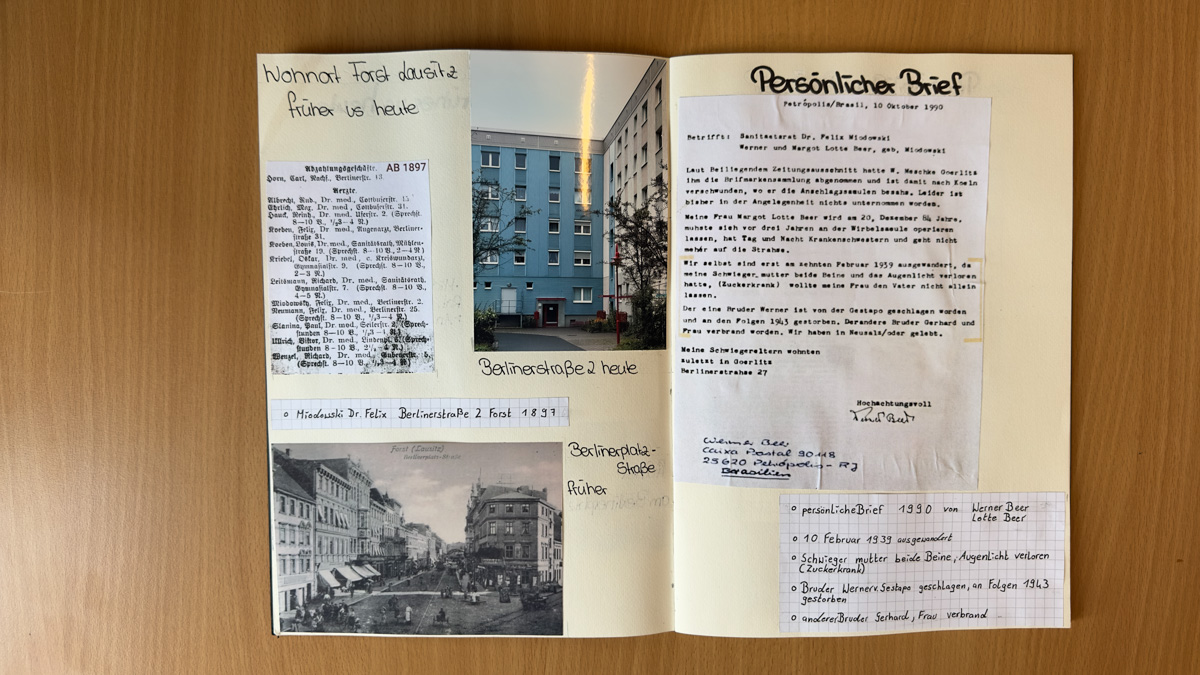 Wohnort Forst Lausitz
früher vs heute
AB 1897
Abzahlungsgeschäfte.
Horn, Carl, Nachf., Berlinerstr. 13
Aerzte.
Albrecht, Rud., Dr. med., Cottbuserstr. 15
Ehrlich, Max, Dr. med., Cottbuserstr. 31.
Hauck, Reinh., Dr. med., Uferstr. 2. (Sprechst.
8—10 V., ½3—4 N.)
Koeben, Felix, Dr. med., Augenarzt, Berliner-
straße 31.
Koeben, Louis, Dr. med., Sanitätsrath, Mühlen-
straße 19. (Sprechst. 8—10 V., 2—4 N.)
Kriebel, Oskar, Dr. med., c. Kreiswundarzt,
Gymnasialstr. 9. (Sprechst. 8—10 V.,
2—3 N.)
Leitsmann, Richard, Dr. med., Sanitätsrath,
Gymnasialstr. 7. (Sprechst. 8—10 V.,
4—5 N.)
Miodowsky, Felix, Dr. med., Berlinerstr. 2.
Neumann, Felix, Dr. med., Berlinerstr. 25.
(Sprechst. 8—10 V., ½3—4 N.)
Slanina, Paul, Dr. med., Seilerstr. 2. (Sprech-
stunden 8—10 V., ½3—4 N.)
Ullrich, Viktor, Dr. med., Lindenpl. 6. (Sprech-
stunden 8—10 V., 2½—4 N.)
Wenzel, Richard, Dr. med., Gubenerstr. 5.
(Sprechst. 8—10 V., ½3—4 N.)
Berlinerstraße 2 heute
o Miodowski Dr. Felix Berlinerstraße 2 Forst 1897
Forst (Lausitz)
Berlinerplatz-
Straße
früher
Persönlicher Brief
Petrópolis/Brasil, 10 Oktober 1990
Betrifft: Sanitaetsrat Dr. Felix Miodowski
Werner und Margot Lotte Beer, geb, Miodowski
Laut Beiliegendem Zeitungsausschnitt hatte W, Meschke Goerlitz
ihm die Brifmarkensammlung abgenommen und ist damit nach Koeln
verschwunden, wo er die Anschlagssaeulen besahs. Leider ist
bisher in der Angelegenheit nichts unternommen worden.
Meine Frau Margot Lotte Beer wird am 20, Dezember 84 Jahre,
muhste sich vor drei Jahren an der Wirbelsaeule operieren
lassen, hat Tag und Nacht Krankenschwestern und geht nicht
mehr auf die Strahse.
Wir selbst sind erst am zehnten Februar 1939 ausgewandert, da
meine Schwieger, mutter beide Beine und das Augenlicht verloren
hatte, (Zuckerkrank) wollte meine Frau den Vater nicht allein
lassen.
Der eine Bruder Werner ist von der Gestapo geschlagen worden
und an den Folgen 1943 gestorben. Derandere Bruder Gerhard und
Frau verbrand worden. Wir haben in Neusalz/oder gelebt.
Meine Schwiegereltern wohnten
zuletzt in Goerlitz
Berlinerstrahse 27
Hochachtungsvoll
Werner Beer
Caixa Postal 90118
25620 Petrópolis - RJ
Brasilien
o persönliche Brief 1990 von Werner Beer
Lotte Beer
o 10 Februar 1939 ausgewandert
o Schwieger mutter beide Beine, Augenlicht verloren
(Zuckerkrank)
o Bruder Werner v. Gestapo geschlagen, an Folgen 1943
gestorben
o anderer Bruder Gerhard, Frau verbrand